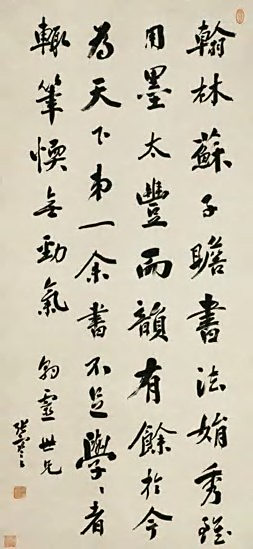 翰林蘇子瞻書法娟秀雖
用墨太豐而韻有餘於今
為天下第一余書不足學學者
輒筆愞無勁氣
勿靈世兄
張謇